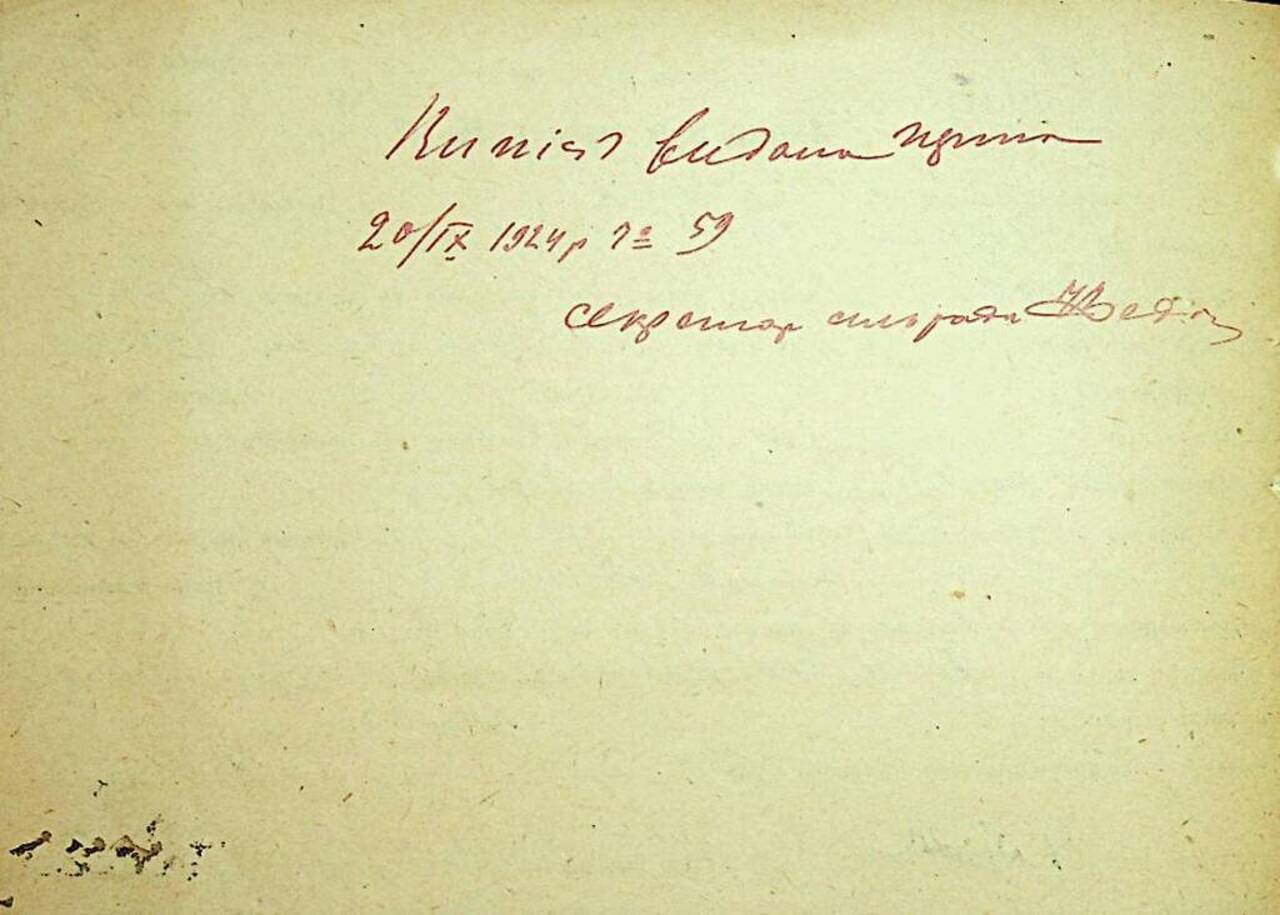 Випіс видана
20/IX 1924 р № 59
секретар сільради